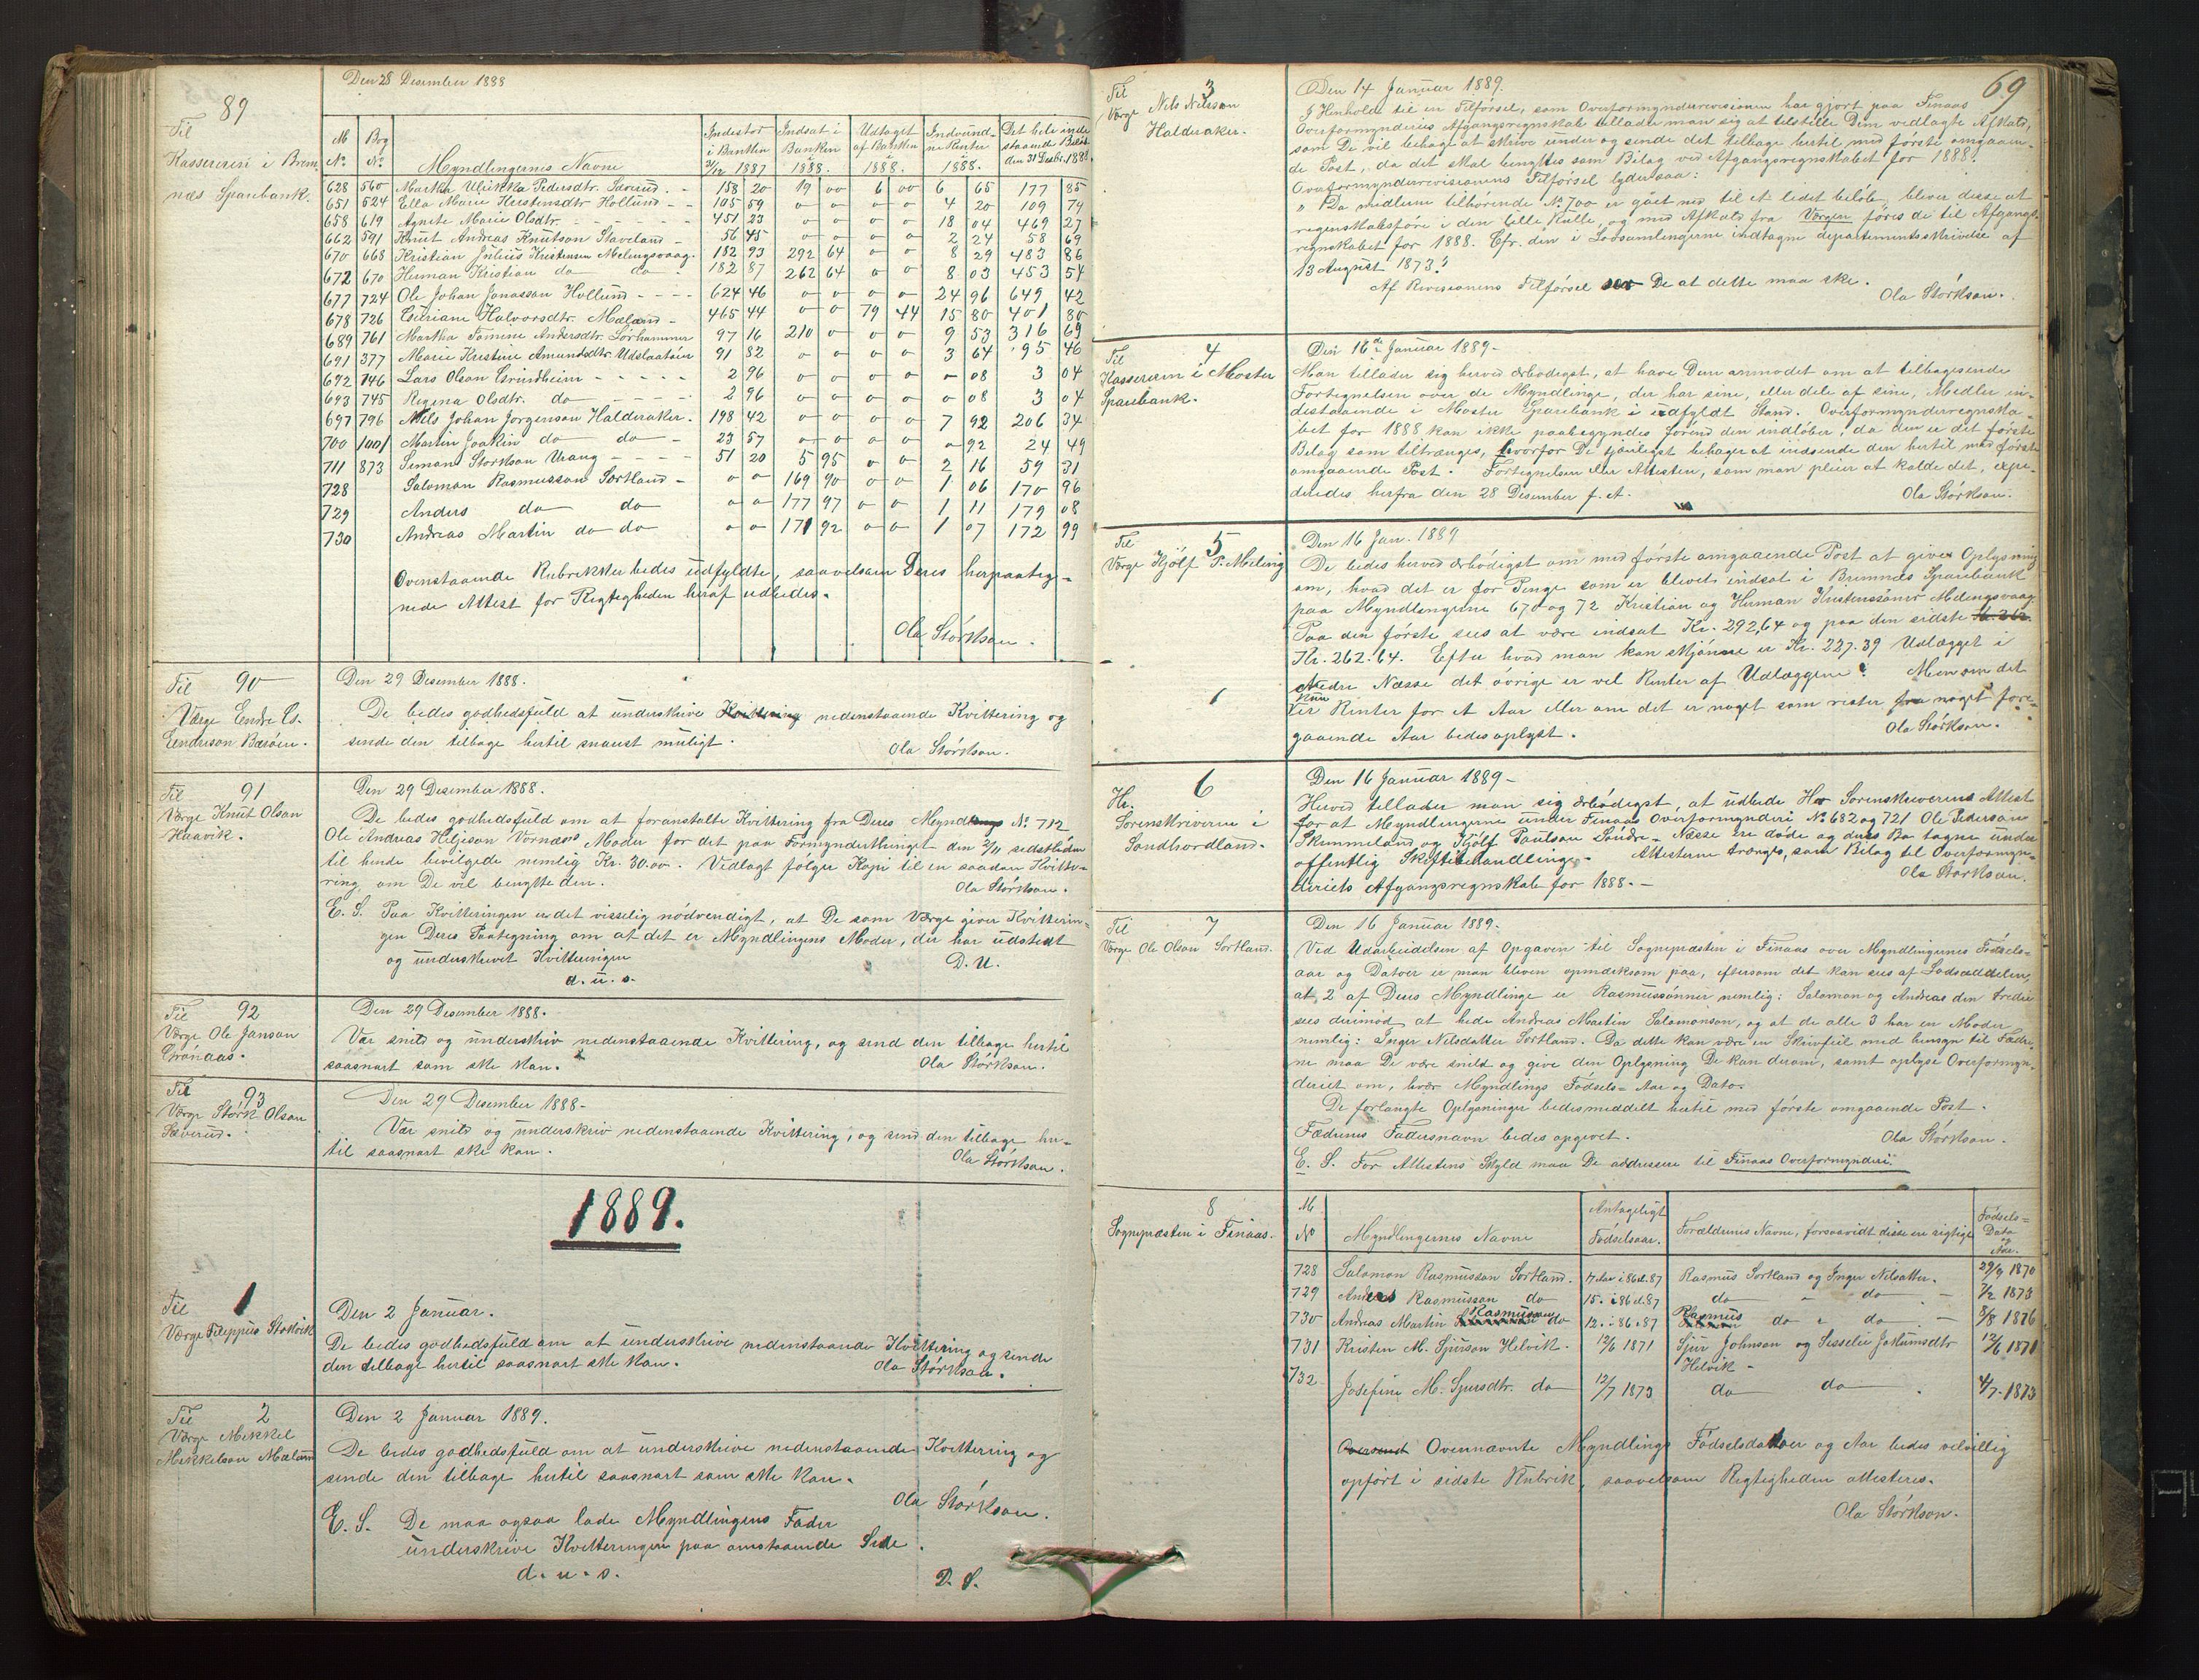 89
Til
Kassereren i Brem-
næs Sparebank.
Den 28 Desember 1888
M No. Bog No. Myndlingernes Navne Indestor i Banken 31/12 1887 Indsat i Banken i 1888. Udtaget af Banken i 1888. Indvundne Renter i 1888. Det hele indestaaende Beløb den 31 Desbr. 1888.
628 560 Martha Ulrikka Pedersdtr. Sæverud. - 158 20 19 00 6 00 6 65 177 85
651 524 Ella Marie Kristensdtr Hollund - - 105 59 o o o o 4 20 109 79
658 619 Agnete Marie Olsdtr. - - - - 451 23 o o o o 18 04 469 27
662 591 Knut Andreas Knutson Staveland - 56 45 o o o o 2 24 58 69
670 668 Kristian Julius Kristensen Melingsvaag. 182 93 292 64 o o 8 29 483 86
672 670 Herman Kristian do do - 182 87 262 64 o o 8 03 453 54
677 724 Ole Johan Jonassan Hollund - - - - 624 46 o o o o 24 96 649 42
678 726 Eseriane Halvorsdtr. Mæland - 465 44 o o 79 44 15 80 401 80
689 761 Martha Tomine Andersdtr. Sørhammer 97 16 210 o o o 9 53 316 69
691 377 Marie Kristine Amundsdtr. Udslaatøen 91 82 o o o o 3 64 95 46
692 746 Lars Olson Grindheim - - - - - 2 96 o o o o - 08 3 04
693 745 Regina Olsdtr. do - - - - 2 96 o o o o o 08 3 04
697 796 Nils Johan Jørgenson Halderaker. 198 42 o o o o 7 92 206 34
700 1001 Martin Joakin do do - 23 57 o o o o o 92 24 49
711 873 Simon Størkson Urang - - - - 51 20 5 95 o o 2 16 59 31
728 Salomon Rasmusson Sortland - o o 169 90 o o 1 06 170 96
729 Anders do do o o 177 97 o o 1 11 179 08
730 Andreas Martin do do o o 171 92 o o 1 07 172 99
Ovenstaaende Rubrikker bedes udfyldte, saavelsom Deres herpaateg-
nede Attest for Rigtigheden heraf udbedes.
Ola Størkson.
Til 90
Værge Endre Es.
Endreson Bærøen.
Den 29 Desember 1888.
De bedes godhedsfuld at underskrive Kvittering nedenstaaende Kvittering og
sende den tilbage hertil snarest muligt.
Ola Størkson.
Til 91
Værge Knut Olson
Haavik.
Den 29 Desember 1888.
De bedes godhedsfuld om at foranstalte Kvittering fra Deres Myndlings No. 712
Ole Andreas Heljeson Vornæs Moder for det paa Formynderthinget den 2/11 sidstleden
til hende bevilgede nemlig Kr. 30.00. Vedlagt følger Kopi til en saadan Kvitte-
ring om De vil benytte den.
Ola Størkson.
E. S. Paa Kvitteringen er det visselig nødvendigt, at De som Værge giver Kvitterin-
gen Deres Paategning om at det er Myndlingens Moder, der har udstedt
og underskrevet Kvitteringen
D. U.
d. u. s.
Til 92
Værge Ole Janson
Grønaas.
Den 29 Desember 1888.
Vær snild og underskriv nedenstaaende Kvittering, og send den tilbage hertil
saasnart som ske kan.
Ola Størkson.
Til 93
Værge Størk Olson
Sæverud.
Den 29 Desember 1888-
Vær snild og underskriv nedenstaaende Kvittering, og send den tilbage her-
til saasnart ske kan.
Ola Størkson.
1889.
Til 1
Værge Filippus Stokvik
Den 2 Januar.
De bedes godhedsfuld om at underskrive nedenstaaende Kvittering og sende
den tilbage hertil saasnart ske kan.
Ola Størkson.
Til 2
Værge Mikkel
Mikkelson Mælum
Den 2 Januar 1889.
De bedes godhedsfuld om at underskrive nedenstaaende Kvittering og
sende den tilbage hertil saasnart som ske kan.
Ola Størkson.
E. S. De maa ogsaa lade Myndlingens Fader
underskrive Kvitteringen paa omstaaende Side.
d. u. s.
D. S.
69
Til 3
Værge Nils Nilsson
Halderaker.
Den 14 Januar 1889.
I Henhold til en Tilførsel, som Overformynderrevisionen har gjort paa Finaas
Overformynderies Afgangsregnskab tillader man sig at tilstille Dem vedlagte Afkald,
som De vil behage at skrive under og sende det tilbage hertil med første omgaaen-
de Post, da det skal benyttes som Bilag ved Afgangsregnskabet for 1888.
Overformynderrevisionens Tilførsel lyder saa:
"Da midlerne tilhørende No. 700 er gået ned til et lidet beløb, bliver disse at
regenskabsføre i den Celle Rulle, og med Afkald fra Værgen føres de til Afgangs-
regnskabet for 1888. Cfr. den i Lovsamlingerne indtagne departementsskrivelse af
13 August 1873."
Af Revisionens Tilførsel ser De at dette maa ske.
Ola Størkson.
Til 4
Kassereren i Moster
Sparebank.
Den 16de Januar 1889-
Man tillader sig herved ærbødigst, at have Dem anmodet om at tilbagesende
Fortegnelsen over de Myndlinge, der har sine, eller dele af sine, Medler in-
destaaende i Moster Sparebank i udfyldt Stand. Overformynderregnska-
bet for 1888 kan ikke paabegyndes førend den indløber, da den er det første
Bilag som tiltrænges, hvorfor De tjenligst behager at indsende den hertil med første
omgaaende Post. Fortegnelsen eller Attesten, som man pleier at kalde det, expe-
deredes herfra den 28 Desember f. A.
Ola Størkson.
Til 5
Værge Kjølf P. Meling
Den 16 Jan. 1889
De bedes herved ærbødigst om med første omgaaende Post at give Oplysning
om, hvad det er for Penge som er blevet indsat i Bremnæs Sparebank
paa Myndlingerne 670 og 72 Kristian og Herman Kristenssønner Melingsvaag.
Paa den første sees at være indsat Kr. 292,64 og paa den sidste
Kr. 262.64. Efter hvad man kan skjønne er Kr. 227.39 Udlægget i
Nedre Næsse det øvrige er vel Renter af Udlæggene? Men om det
kun
er Renter for et Aar eller om det er noget som rester fra noget fore-
gaaende Aar bedes oplyst.
Ola Størkson.
1
6
Hr.
Sorenskriveren i
Søndhordland.
Den 16 Januar 1889-
Herved tillader man sig ærbødigst, at udbede Hr Sorenskriverens Attest
for at Myndlingerne under Finaas Overformynderi No. 682 og 721 Ole Pederson
Skimmeland og Kjølf Paulson Søndre-Næsse ere døde og deres Bo tagne under
offentlig Skiftebehandling. Attesterne trænges, som Bilag til Overformyn-
deriets Afgangsregnskab for 1888. -
Ola Størkson.
Til 7
Værge Ole Olson Sortland.
Den 16 Januar 1889.
Ved Udarbeidelsen af Opgaven til Sognepræsten i Finaas over Myndlingernes Fødsels-
aar og Datoer er man bleven opmærksom paa, eftersom det kan sees af Lodseddelen,
at 2 af Deres Myndlinge er Rasmussønner nemlig: Salomon og Andreas den tredie
sees derimod at hede Andreas Martin Salomonson, og at de alle 3 har en Moder
nemlig: Inger Nilsdatter Sortland. Da dette kan være en Skrivfeil med hensyn til Fædre-
ne maa De være snild og give den Oplysning De kan derom, samt oplyse Overformyn-
deriet om, hver Myndlings Fødsels- Aar og Dato.
De forlangte Oplysninger bedes meddelt hertil med første omgaaende Post.
Fædrenes Fadersnavn bedes opgivet.
Ola Størkson.
E. S. For Attestens Skyld maa De addressere til Finaas Overformynderi.
8
Sognepræsten i Finaas.
M No Myndlingernes Navne Antageligt Fødselsaar. Forældrenes Navne, forsaavidt disse ere rigtige Fødsels- Data og Aar.
728 Salomon Rasmusson Sortland. 17 Aar i 86 el. 87 Rasmus Sortland og Inger Nilsatter. 29/9 1870
729 Anders Rasmusson do 15. i 86 el. 87 do " do - 7/2 1873
730 Andreas Martin Rasmusson do 12. i 86 87 Rasmus do " do - 8/8 1876
731 Kristen M. Sjurson Helvik. 12/6 1871 Sjur Johnson og Sisselie Jokumsdtr Helvik - 12/6 1871
732 Josefine M. Sjursdtr. do 12/7 1873 do do . 4/7. 1873
Oversend Ovennævnte Myndlings Fødselsdatoer og Aar bedes velvillig
opført i sidste Rubrik, saavelsom Rigtigheden attesteres.
Ola Størkson.